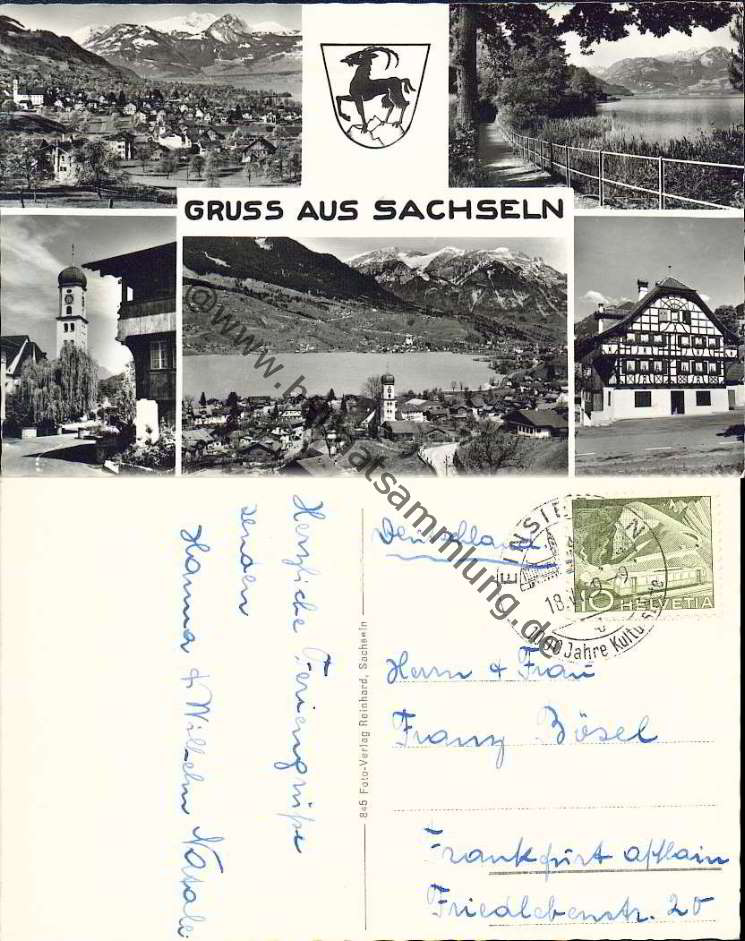 GRUSS AUS SACHSELN
@www.heimatsammlung.de
Herzliche Feriengrüße
senden
Hanna & Wilhelm Natale
845 Foto-Verlag Reinhard, Sachseln
Deutschland
EINSIEDELN
18.
1100 Jahre Kulturstätte
10 HELVETIA
Herrn & Frau
Franz Bösel
Frankfurt a/Main
Friedlebenstr. 20